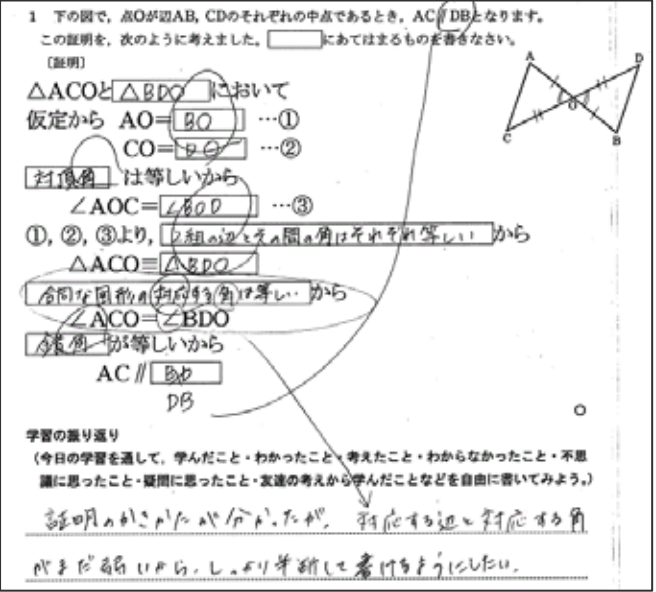 1 下の図で,点Oが辺AB,CDのそれぞれの中点であるとき,AC∥DBとなります。
この証明を,次のように考えました。 にあてはまるものを書きなさい。
〔証明〕
△ACOと△BDOにおいて
仮定から AO=BO …①
CO=DO …②
対頂角は等しいから
∠AOC=∠BOD …③
①,②,③より,2組の辺とその間の角はそれぞれ等しいから
△ACO≡△BDO
合同な図形の対応する角は等しいから
∠ACO=∠BDO
錯角が等しいから
AC∥BD
DB
A
D
O
C
B
学習の振り返り
(今日の学習を通して,学んだこと・わかったこと・考えたこと・わからなかったこと・不思
議に思ったこと・疑問に思ったこと・友達の考えから学んだことなどを自由に書いてみよう。)
証明のかきかたが分かったが、対応する辺と対応する角
がまだ弱いから、しっかり判断して書けるようにしたい。